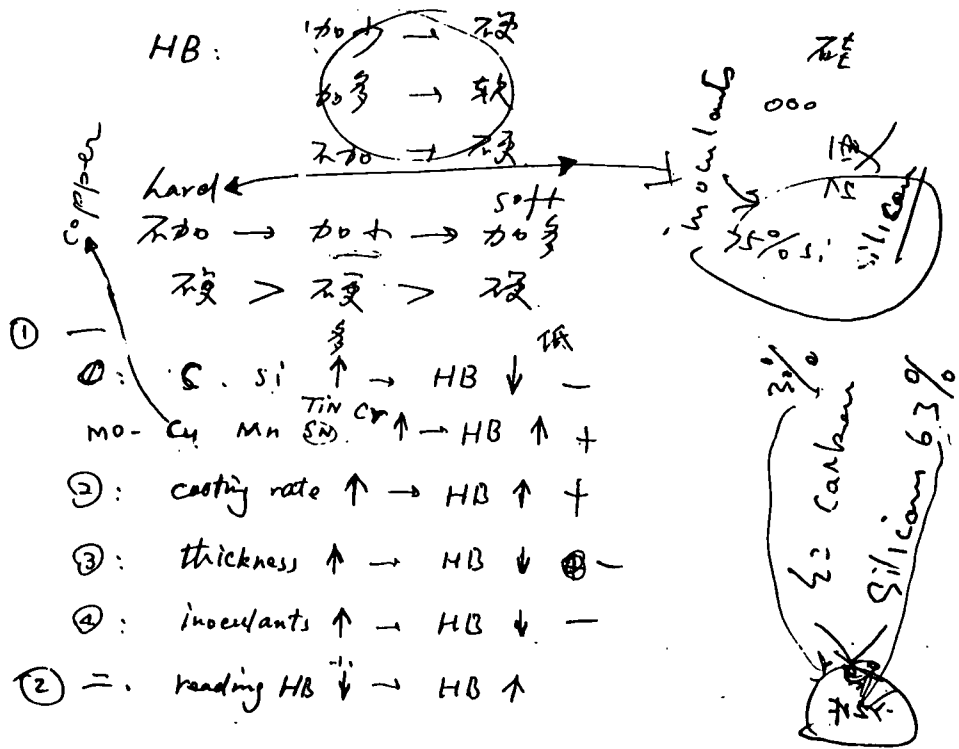 HB: 加少 → 硬
加多 → 软
不加 → 硬
hard soft
不加 → 加少 → 加多
硬 > 硬 > 硬
Copper
① 一
多 低
①: C. Si ↑ → HB ↓ —
Mo- Cu Mn Sn Tin Cr ↑ → HB ↑ +
②: casting rate ↑ → HB ↑ +
③: thickness ↑ → HB ↓ —
④: inoculants ↑ → HB ↓ —
② 二. reading HB ↓ → HB ↑
inoculants
ooo
75% Si
silicon
Carbon
Silicon 63%